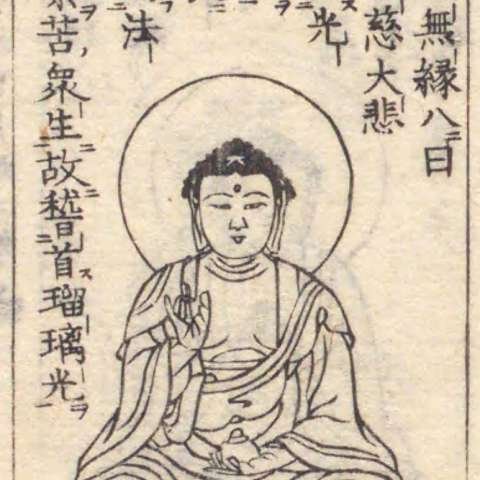 無縁八日
慈大悲
光
法
苦、衆生故稽首瑠璃光